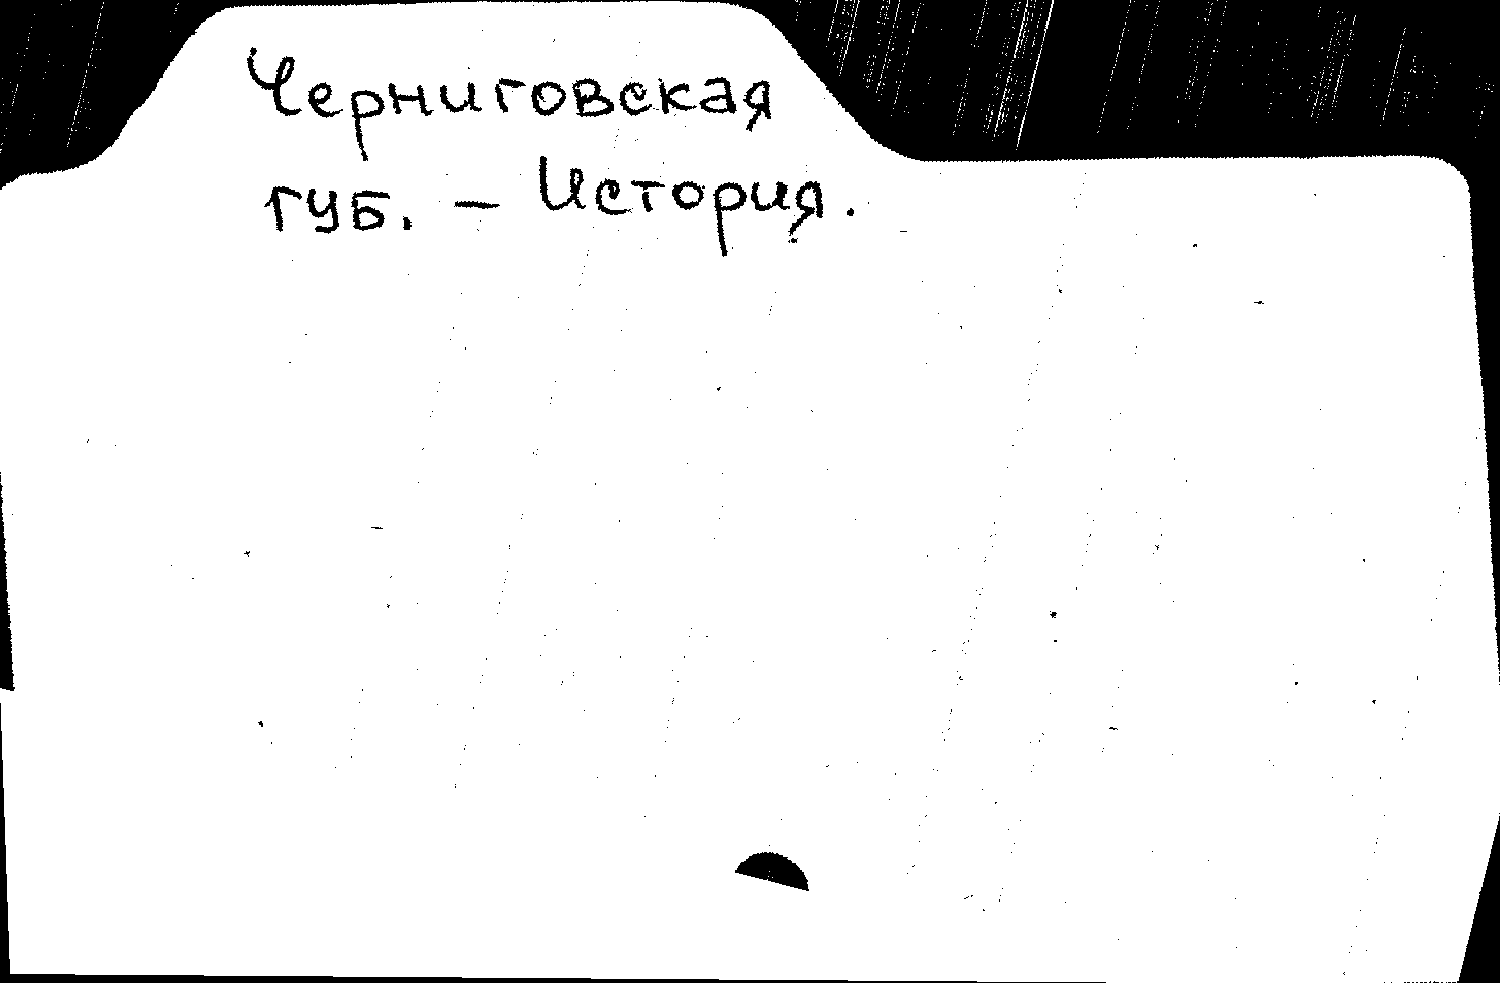 Черниговская
губ. - История.